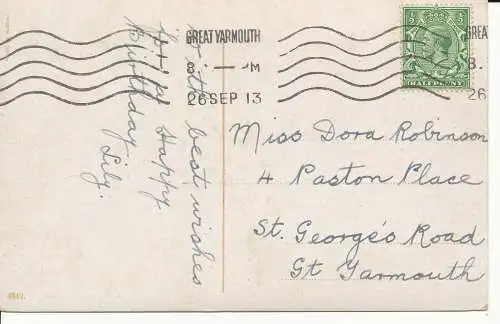 GREAT YARMOUTH
8 — PM
26 SEP 13
GREA
8.
26
HALFPENNY
With best wishes
for a Happy
Birthday
Lily.
Miss Dora Robinson
4 Paston Place
St. George's Road
Gt Yarmouth